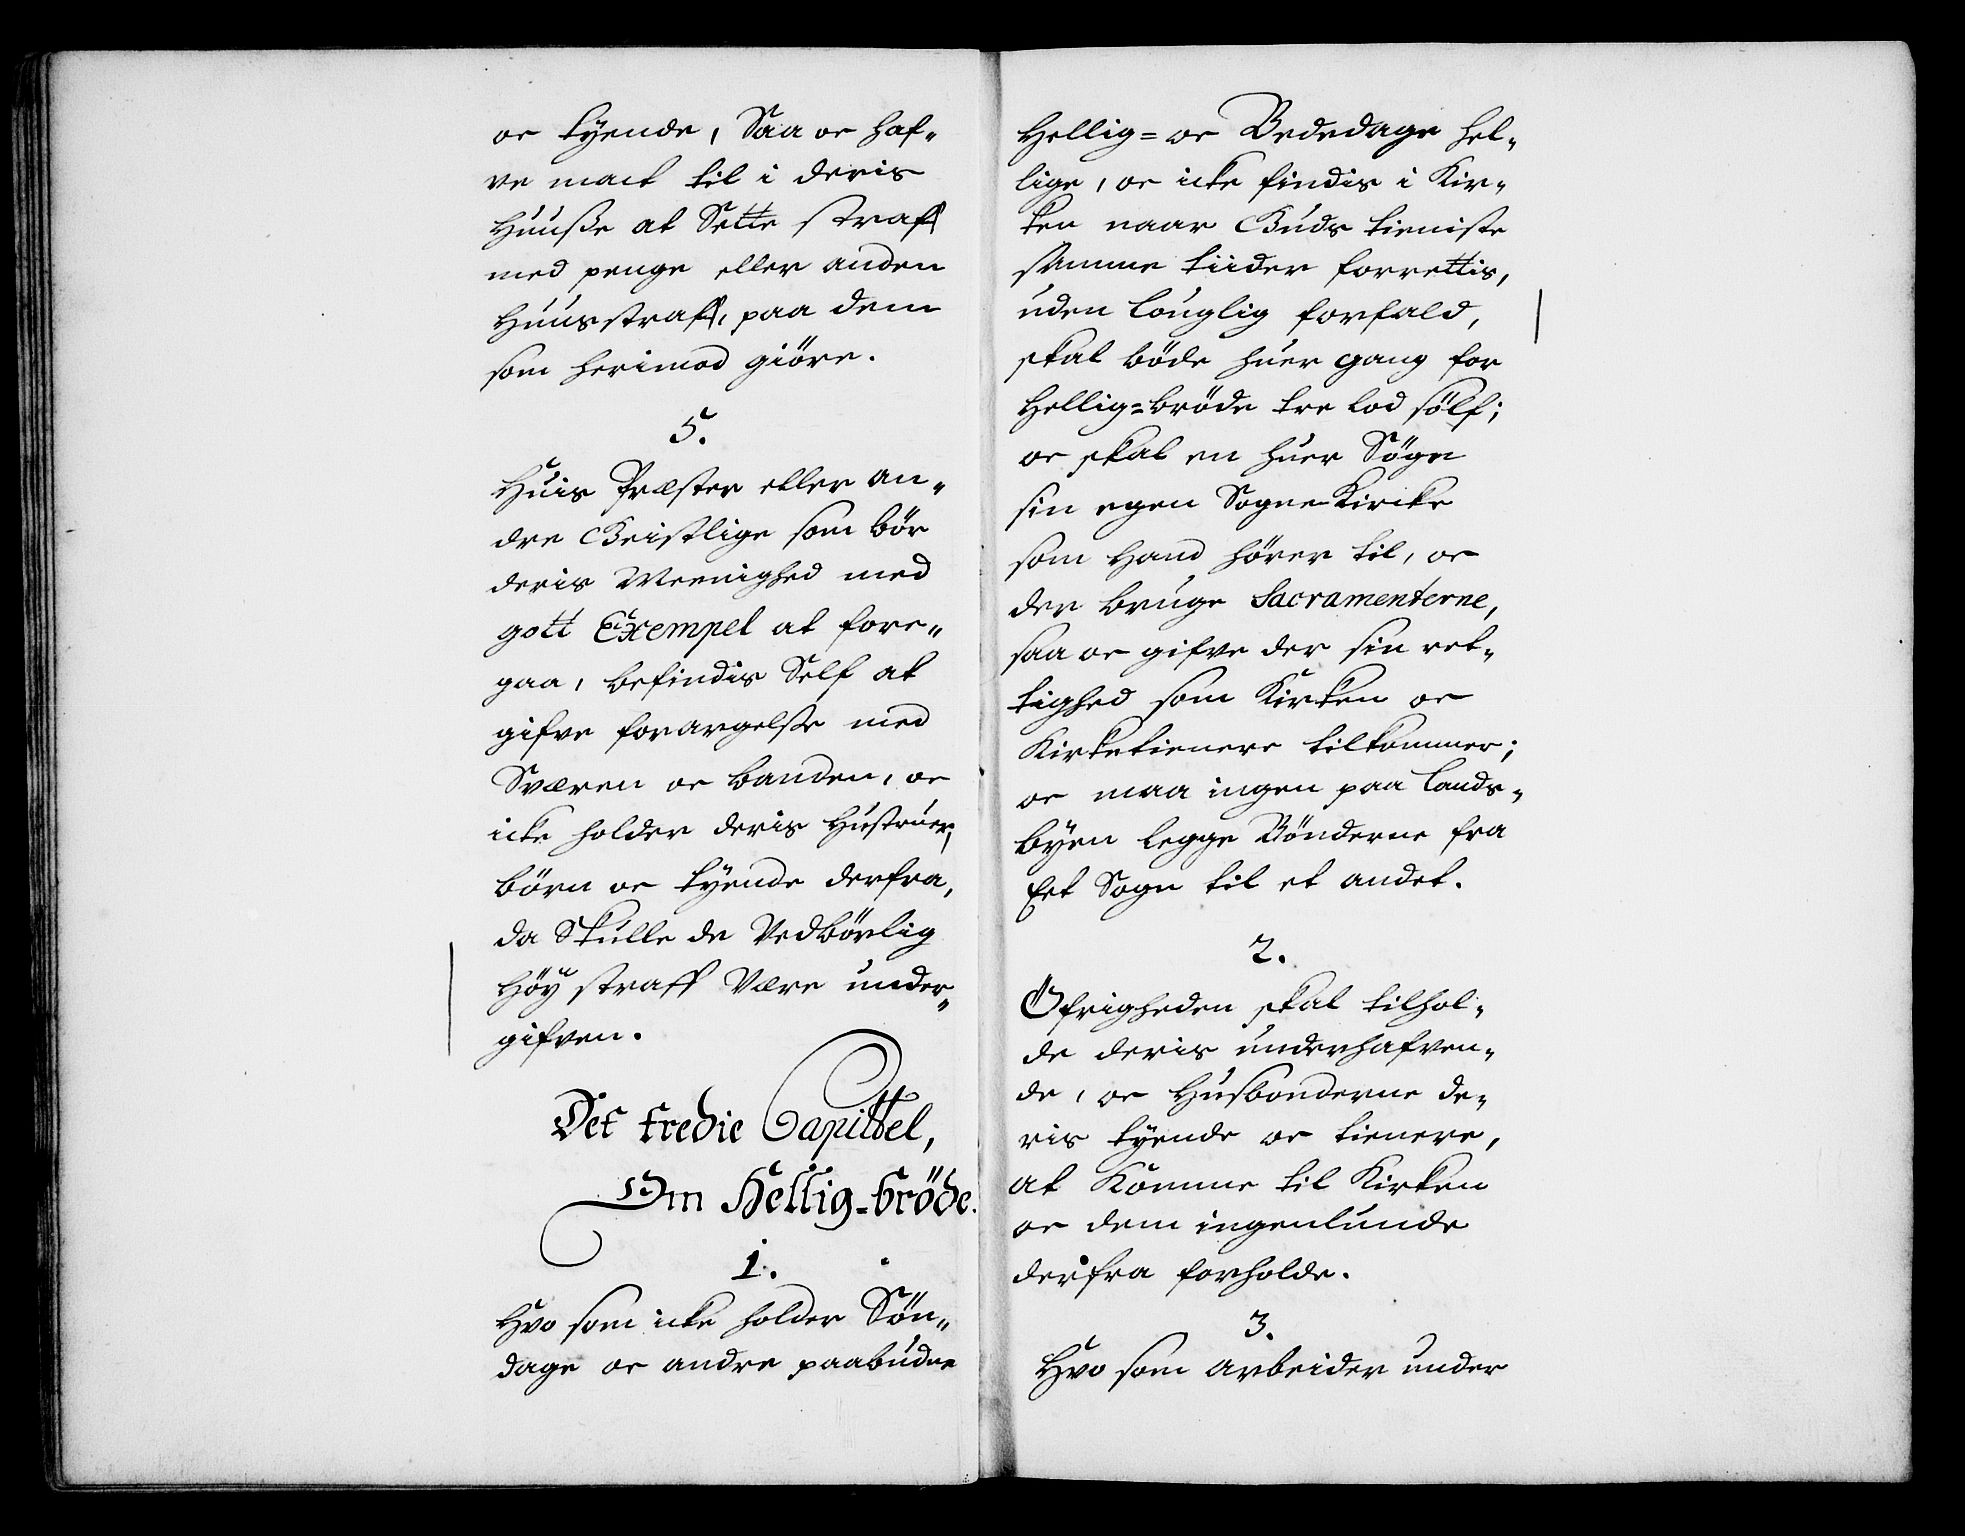 oc tyende, Saa oc haf„
ve mact til i deris
Huusse at Sette straff
med penge eller anden
Huusstraff, paa dem
som herimod giöre.
5.
Huis Præster eller an„
dre Geistlige som bör
deris Meenighed med
gott Exempel at fore„
gaa, befindis Self at
gifve forargelsse med
Sværen oc banden, oc
icke holder deris Hustruer,
börn oc tyende derfra,
da Skulle de Vedbörlig
Höy straff Være under„
gifven.
Det tredie Capittel,
Om Hellig-bröde.
1.
Hvo som icke holder Sön„
dage oc andre paabudne
Hellig= oc Bededage hel„
lige, oc icke findis i Kir„
ken naar Guds tieniste
samme tiider forrettis,
uden louglig forfald,
skal böde huer gang for
Hellig=bröde tre lod sölf;
oc skal en huer Söge
sin egen Sogne Kircke
som Hand hörer til, oc
der bruge Sacramenterne,
saa oc gifve der sin ret„
tighed som Kirken oc
Kirketienere tilkommer;
oc maa ingen paa Lands„
byen legge Bönderne fra
Eet Sogn til et andet.
2.
Öfrigheden skal tilhol„
de deris underhafven„
de, oc Husbonderne de„
ris tyende oc tienere,
at Komme til Kirken
oc dem ingenlunde
derfra forholde.
3.
Hvo som arbeider under